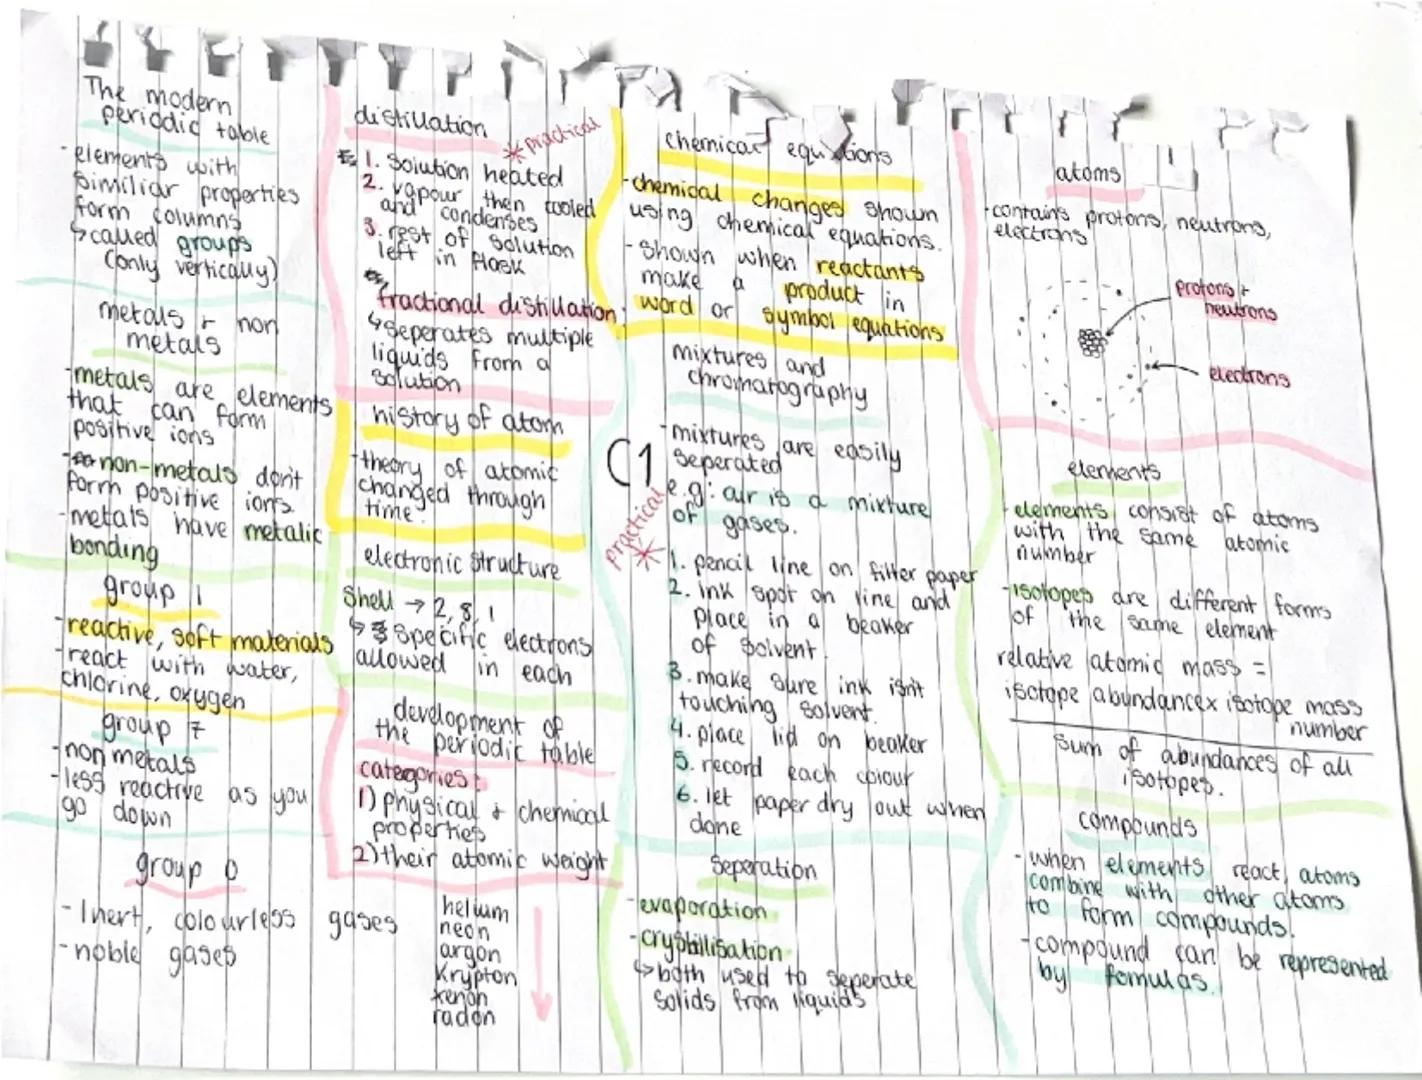 The modern
periodic table
- elements with
similiar properties
form columns
↳ called groups
(only vertically)
metals + non
metals
- metals are elements
that can form
positive ions
- non-metals don't
form positive ions.
- metals have metalic
bonding
group 1
- reactive, soft materials
- react with water,
chlorine, oxygen
group 7
- non metals
- less reactive as you
go down
group 0
- Inert, colourless gases
- noble gases
helium
neon
argon
Krypton
xenon
radon
distillation
* practical
1. Solution heated
2. vapour then cooled
and condenses
3. rest of solution
left in flask
fractional distillation
↳ seperates multiple
liquids from a
solution
history of atom
- theory of atomic
changed through
time.
electronic structure
Shell → 2, 8, 1
↳ specific electrons
allowed in each
development of
the periodic table
categories:
1) physical + chemical
properties
2) their atomic weight
C1
chemical equations
- chemical changes shown
using chemical equations.
- shown when reactants
make a product in
word or symbol equations
mixtures and
chromatography
- mixtures are easily
seperated
e.g: air is a mixture
of gases.
practical *
1. pencil line on filter paper
2. ink spot on line and
place in a beaker
of solvent
3. make sure ink isn't
touching solvent.
4. place lid on beaker
5. record each colour
6. let paper dry out when
done
Seperation
- evaporation
- crystallisation
↳ both used to seperate
solids from liquids
atoms
- contains protons, neutrons,
electrons
protons +
neutrons
electrons
elements
- elements consist of atoms
with the same atomic
number
- isotopes are different forms
of the same element
relative atomic mass =
isotope abundance x isotope mass
number
sum of abundances of all
isotopes.
compounds
- when elements react, atoms
combine with other atoms
to form compounds.
- compound can be represented
by fomulas.